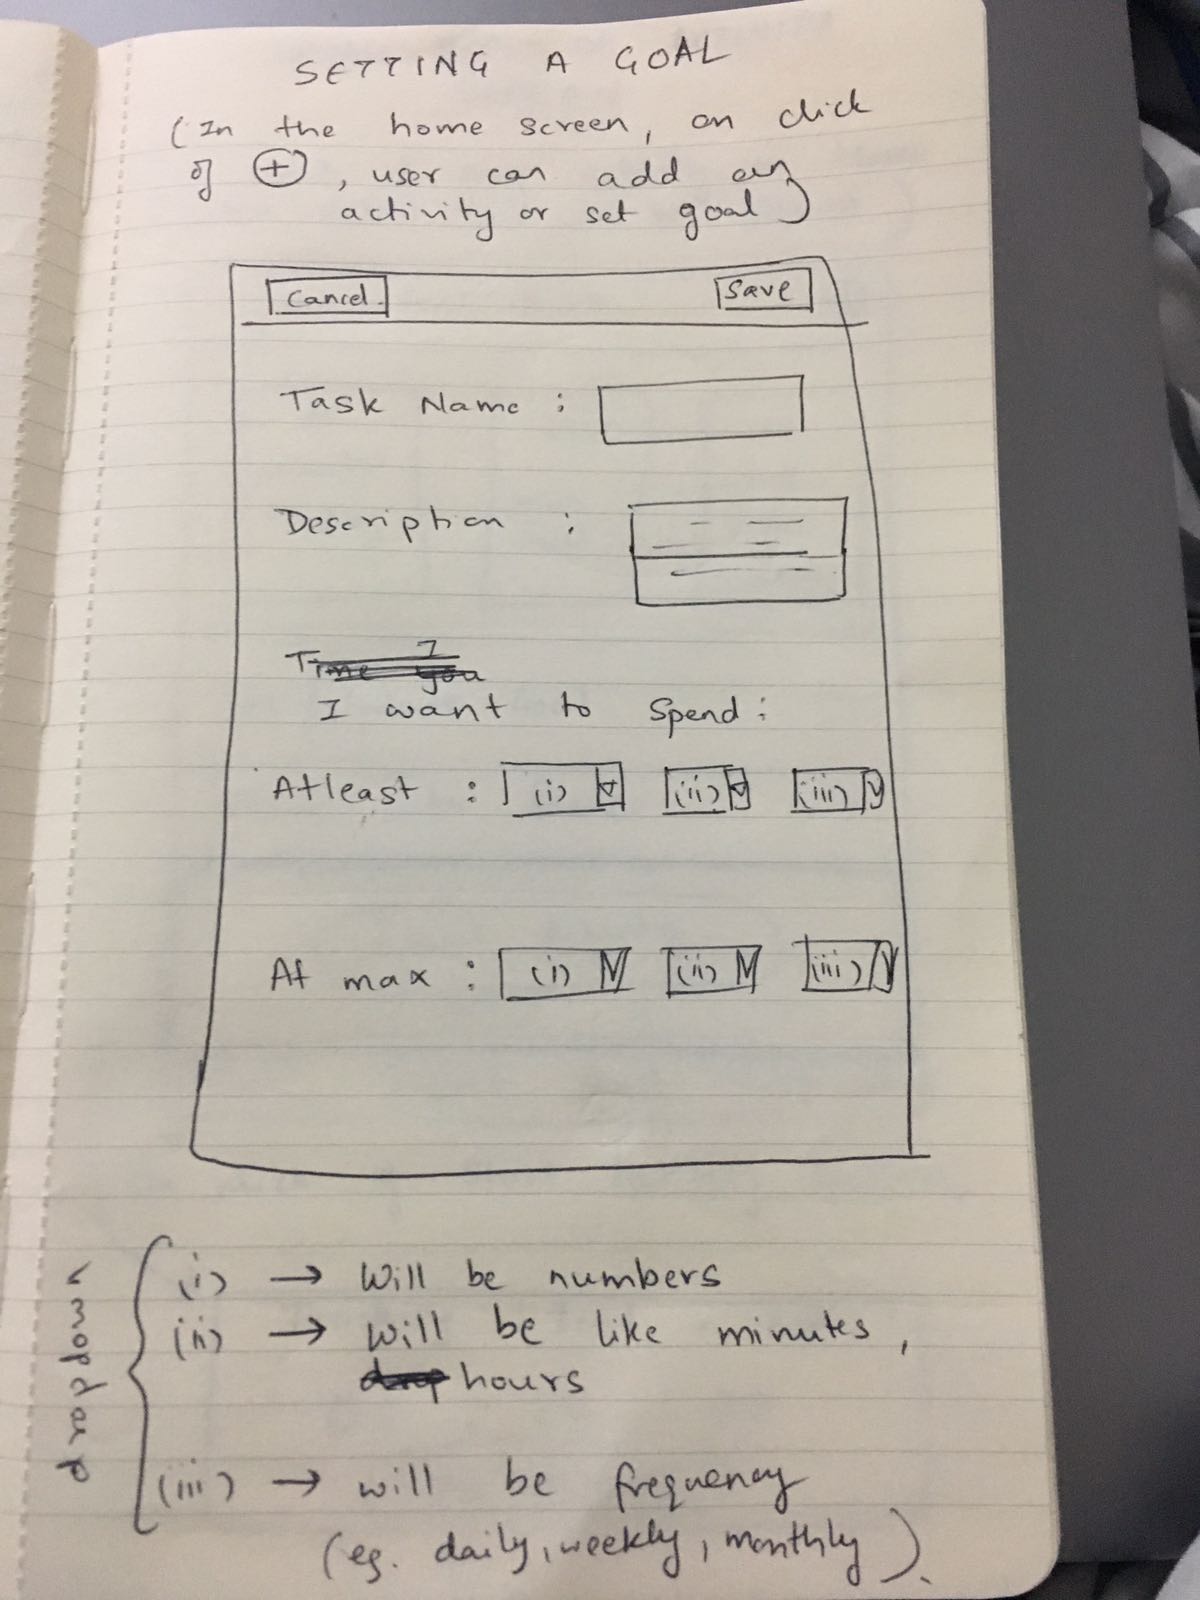 SETTING A GOAL
(In the home screen, on click
of +, user can add any
activity or set goal)
Cancel Save
Task Name :
Description :
Time I you
I want to spend:
Atleast : (i) (ii) (iii)
At max : (i) (ii) (iii)
dropdown
(i) → Will be numbers
(ii) → will be like minutes,
drop hours
(iii) → will be frequency
(eg. daily, weekly, monthly).